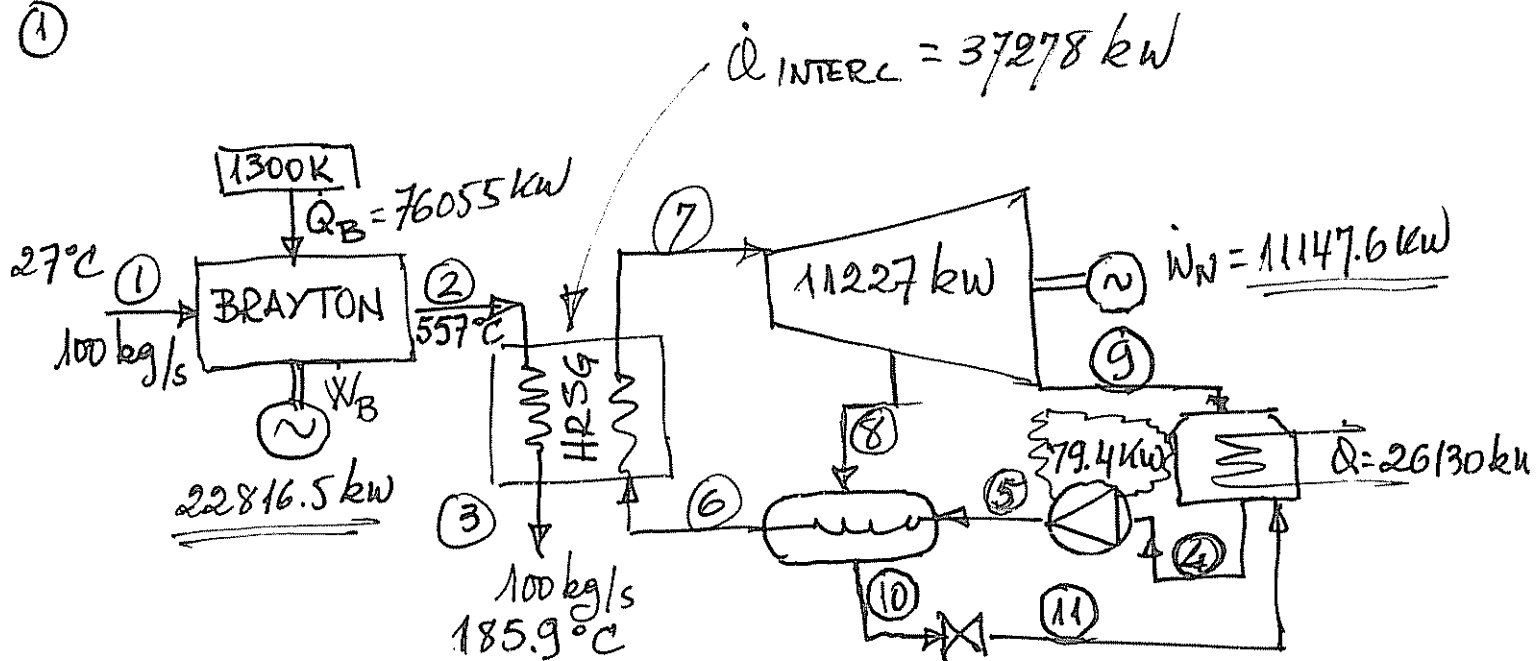 ①
Q̇ INTERC = 37278 kW
1300K
Q̇B = 76055 kW
27°C
①
100 kg/s
BRAYTON
②
557°C
ẆB
22816.5 kW
HRSG
③
100 kg/s
185.9°C
⑦
11227 kW
ẆN = 11147.6 KW
⑨
⑧
79.4 KW
Q̇=26130 kW
⑥
⑤
④
⑩
⑪